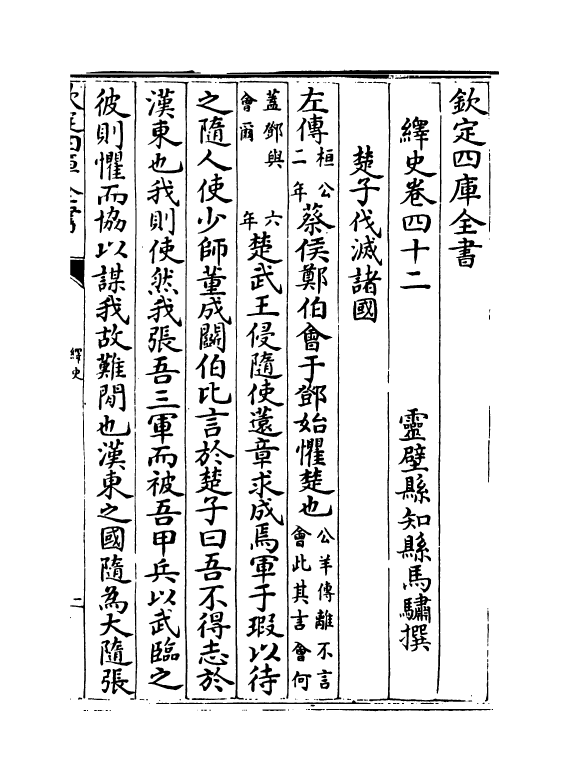 欽定四庫全書
繹史卷四十二 靈壁縣知縣馬驌撰
楚子伐滅諸國
左傳桓公二年蔡侯鄭伯會于鄧始懼楚也公羊傳離不言會此其言會何
蓋鄧與會爾六年楚武王侵隨使薳章求成焉軍于瑕以待
之隨人使少師董成鬬伯比言於楚子曰吾不得志於
漢東也我則使然我張吾三軍而被吾甲兵以武臨之
彼則懼而協以謀我故難間也漢東之國隨為大隨張
欽定四庫全書
繹史